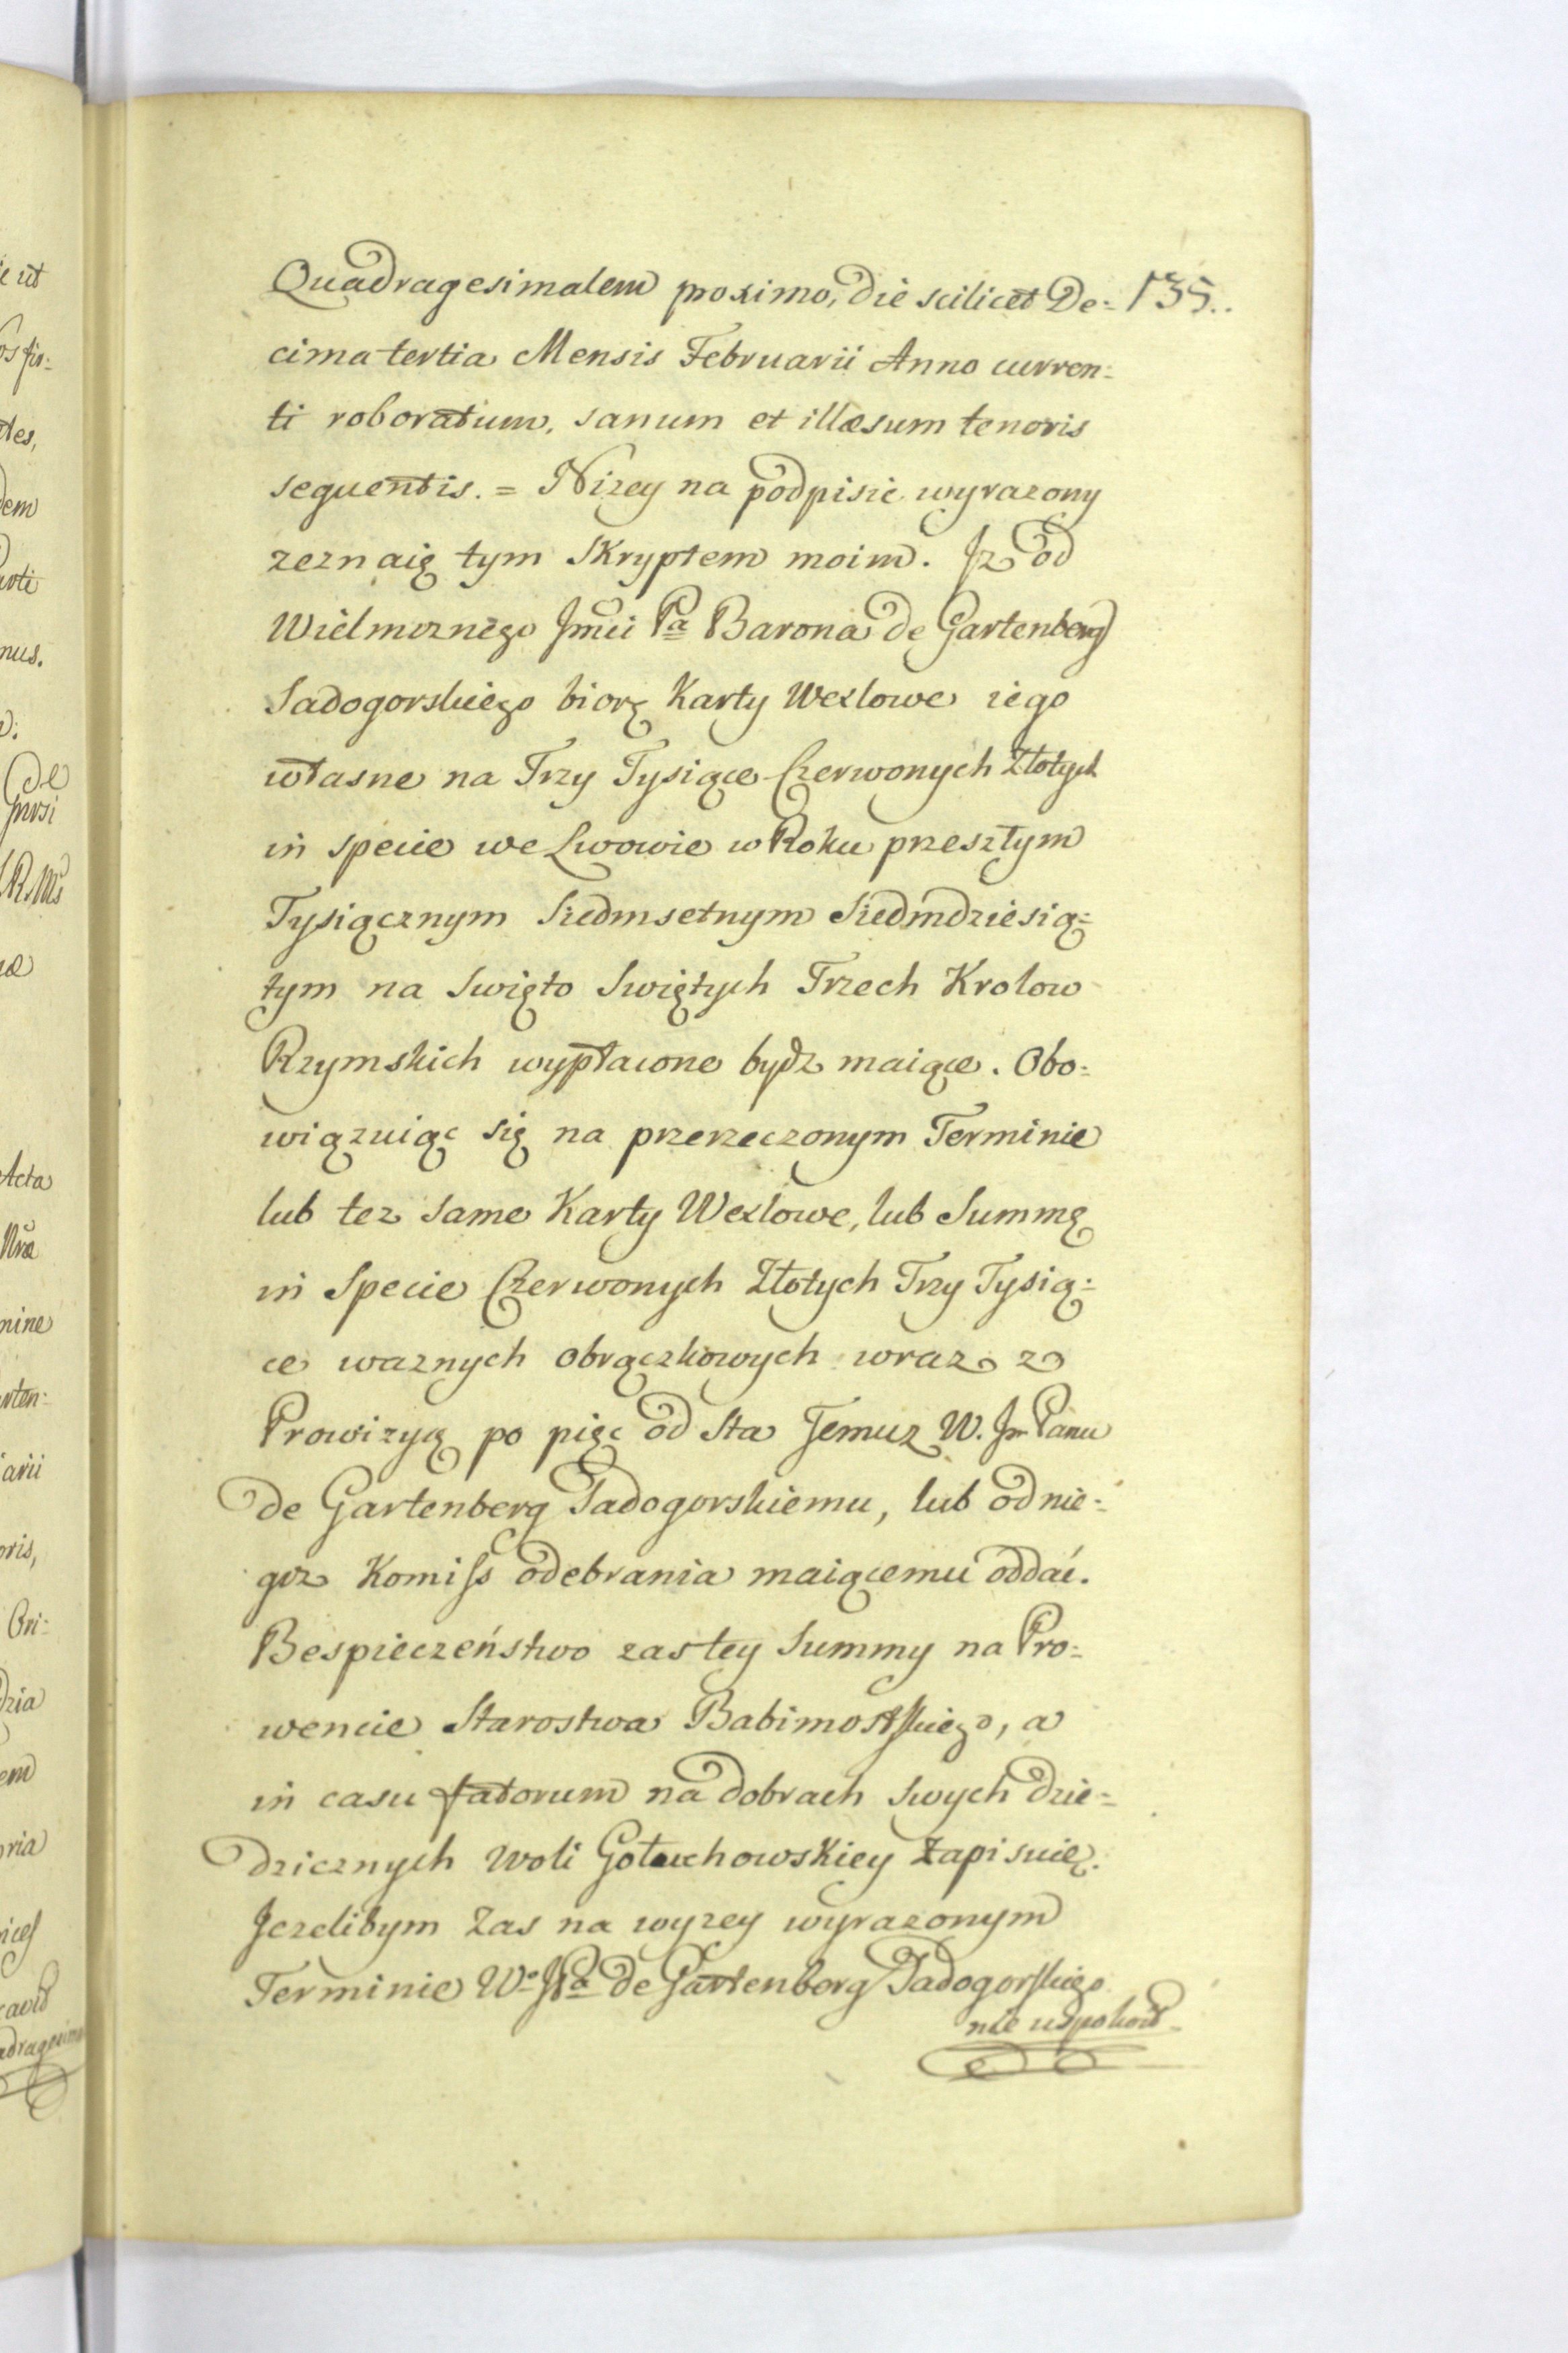 Quadragesimalem proximo, die scilicet De= 135..
cima tertia Mensis Februarii Anno curren=
ti roboratum, sanum et illæsum tenoris
sequentis. = Nizey na podpisie wyrazony
zeznaię tym Skryptem moim. Jz od
Wielmoznego Jmci Pa Barona de Gartenberg
Sadogorskiego biorę Karty Wexlowe iego
własne na Trzy Tysiące Czerwonych Złotych
in specie we Lwowie w Roku przeszłym
Tysiącznym Siedmsetnym Siedmdziesią=
tym na Swięto Swiętych Trzech Krolow
Rzymskich wypłacone bydz maiące. Obo=
wiązuiąc się na przerzeczonym Terminie
lub tez same Karty Wexlowe, lub Summę
in Specie Czerwonych Złotych Trzy Tysią=
ce waznych obrączkowych wraz z
Prowizyą po pięc od Sta Jemuz W. Jm Panu
de Gartenberg Sadogorskiemu, lub od nie=
goz Komiss odebrania maiącemu oddać.
Bespieczeństwo zas tey Summy na Pro=
wencie Starostwa Babimostskiego, a
in casu fatorum na dobrach swych dzie=
dzicznych Woli Gołuchowskiey Zapisuię.
Jezelibym Zas na wyzey wyrazonym
Terminie Wo JPa de Gartenberg Sadogorskiego
nie uspokoił
ie ut
tes,
dem
nus.
de
Acta
mine
arii
oris,
Ori=
dzia
em
oria